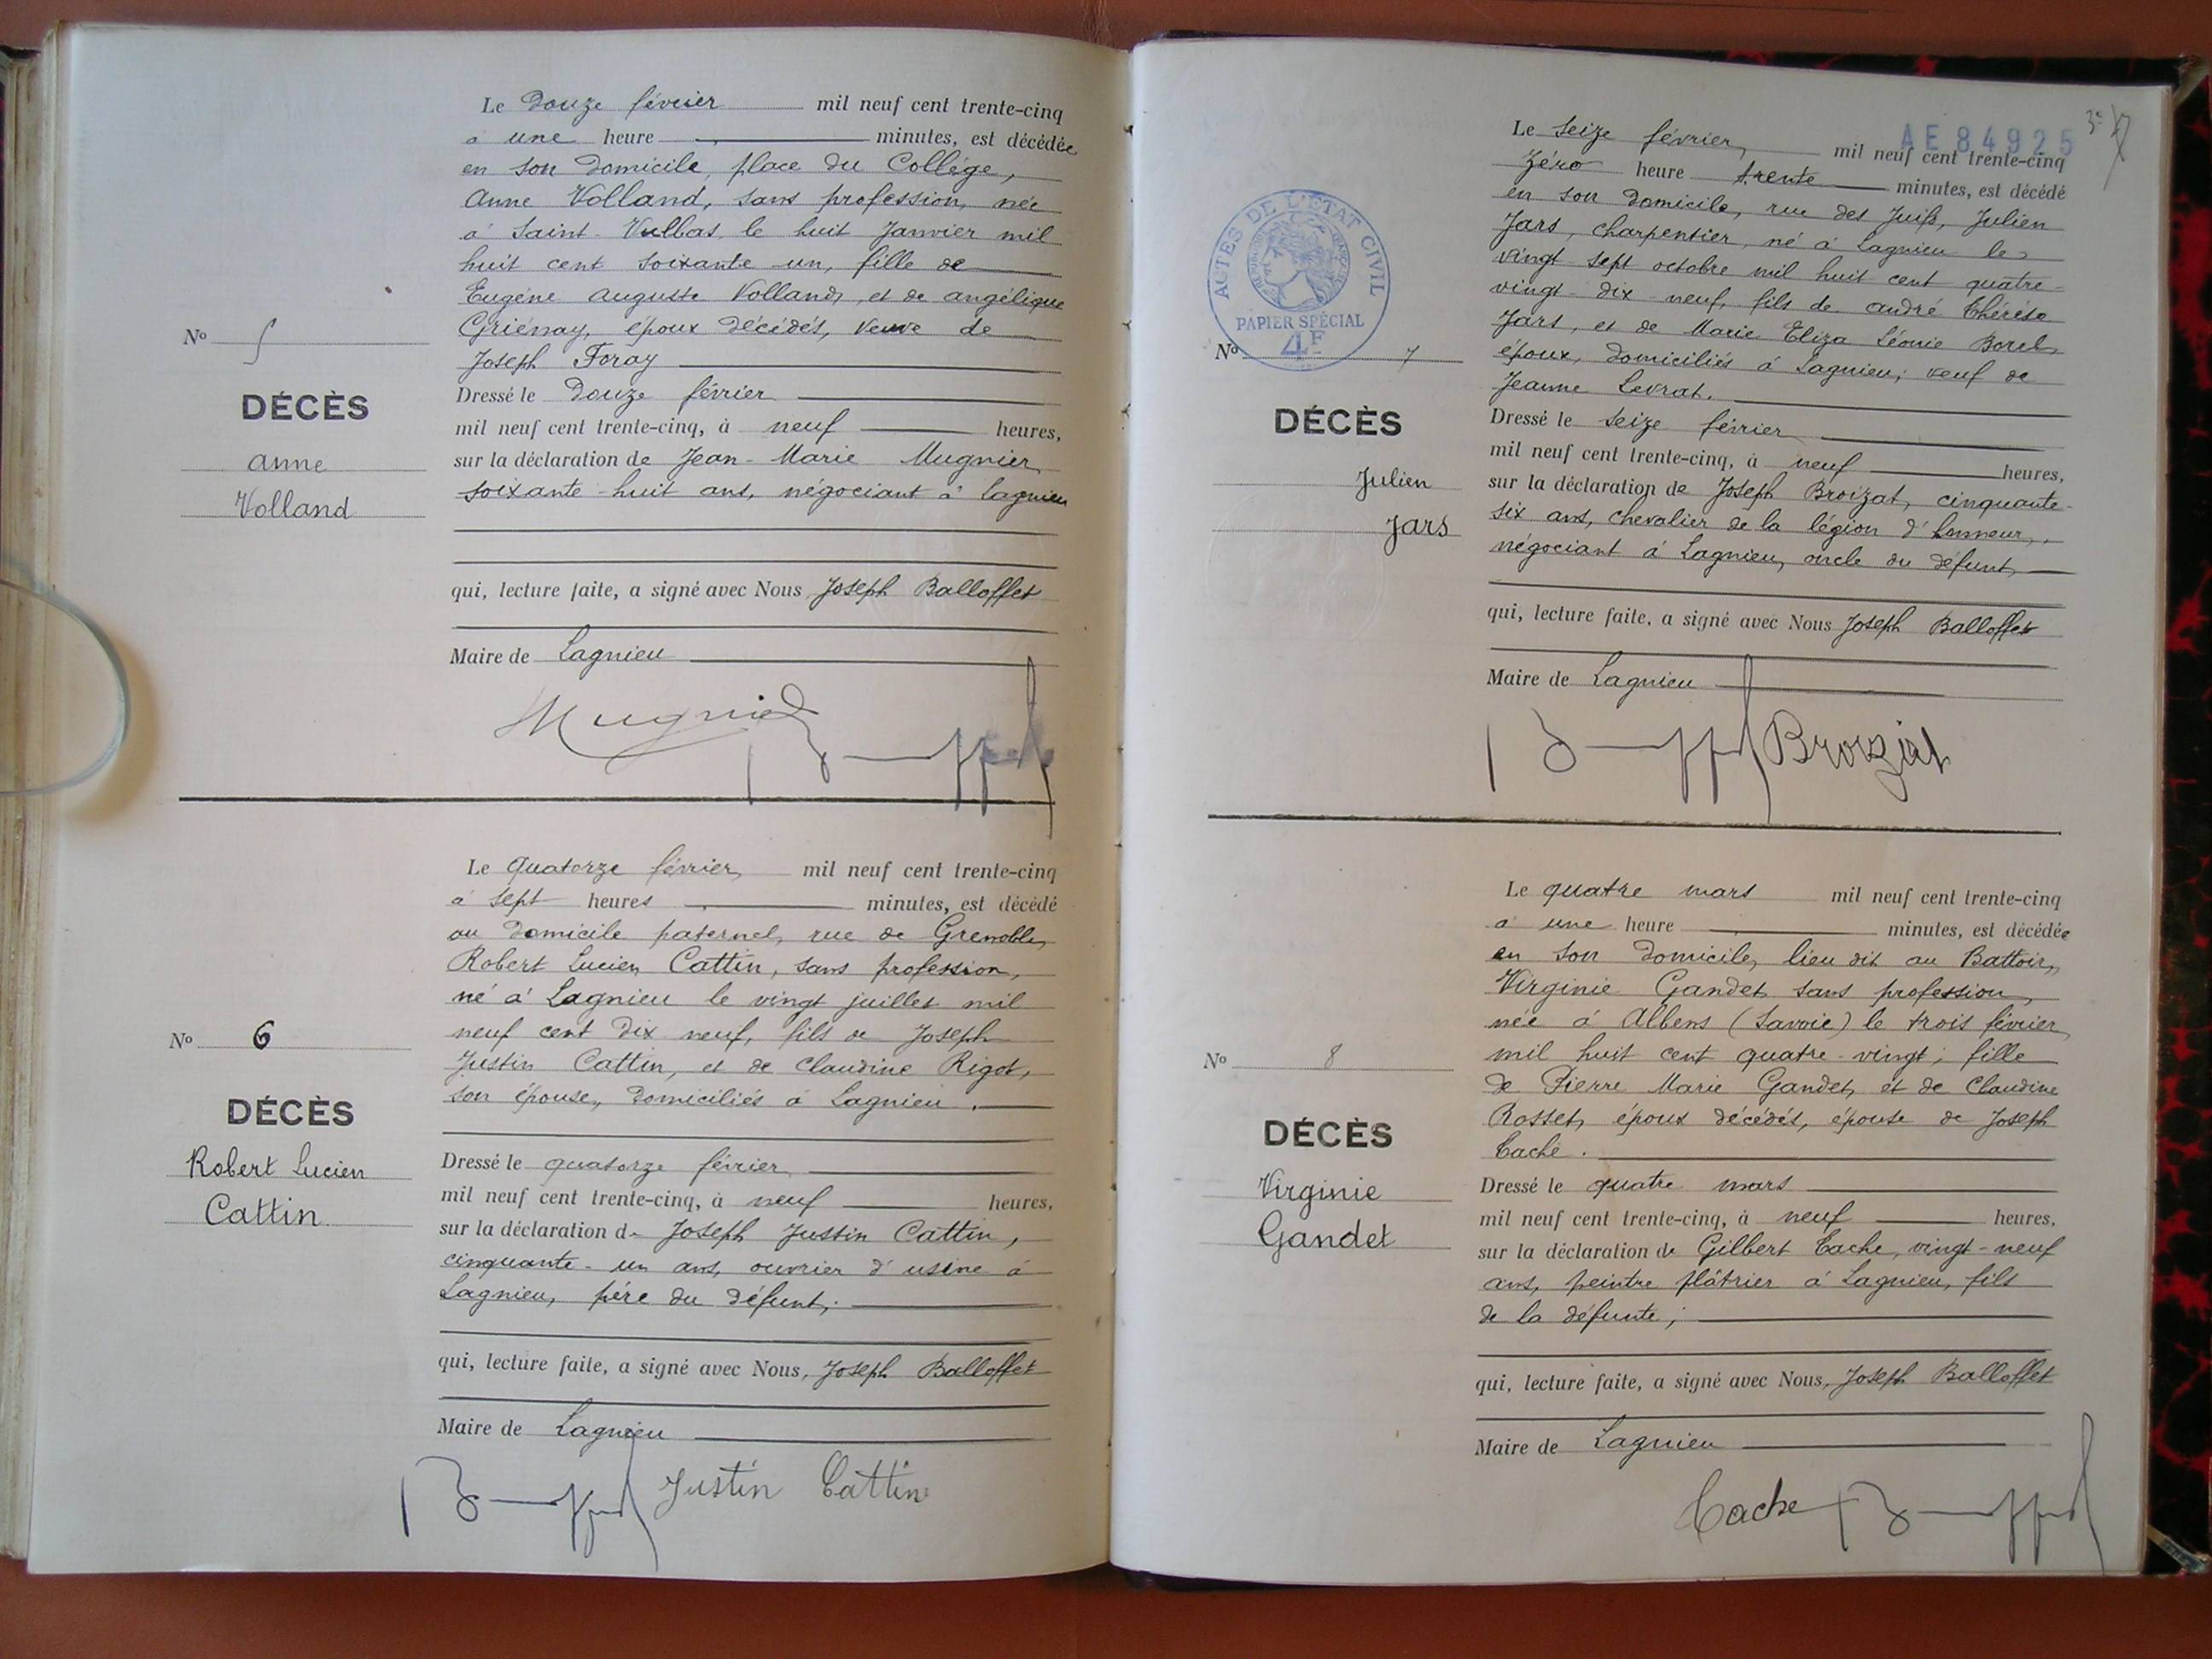 Le Douze février mil neuf cent trente-cinq
à une heure minutes, est décédée
en son domicile, place du Collége,
Anne Volland, sans profession, née
à Saint-Vulbas le huit Janvier mil
huit cent soixante-un, fille de
Eugéne Auguste Volland, et de Angélique
Griénay, époux décédés, veuve de
Joseph Foray
Nº 5
DÉCÈS
Anne
Volland
Dressé le Douze février
mil neuf cent trente-cinq, à neuf heures,
sur la déclaration de Jean-Marie Mugnier,
soixante-huit ans, négociant à Lagnieu
qui, lecture faite, a signé avec Nous Joseph Balloffet
Maire de Lagnieu
Mugnier
Le Quatorze février, mil neuf cent trente-cinq
à sept heures minutes, est décédé
au domicile paternel, rue de Grenoble,
Robert Lucien Cattin, sans profession,
né à Lagnieu le vingt juillet mil
neuf cent dix neuf, fils de Joseph
Justin Cattin, et de Claudine Rigot,
son épouse, domiciliés à Lagnieu.
Nº 6
DÉCÈS
Robert Lucien
Cattin
Dressé le quatorze février
mil neuf cent trente-cinq, à neuf heures,
sur la déclaration de Joseph Justin Cattin,
cinquante-un ans, ouvrier d'usine à
Lagnieu, père du défunt;
qui, lecture faite, a signé avec Nous, Joseph Balloffet
Maire de Lagnieu
Justin Cattin
AE 84925
Le Seize février, mil neuf cent trente-cinq
Zéro heure trente minutes, est décédé
en son domicile, rue des Juifs, Julien
Jars, charpentier, né à Lagnieu le
vingt-sept octobre mil huit cent quatre-
vingt-dix-neuf, fils de André Thérèse
Jars, et de Marie Eliza Léonie Borel,
époux, domiciliés à Lagnieu; veuf de
Jeanne Levrat.
ACTES DE L'ETAT CIVIL
PAPIER SPÉCIAL
4F
Nº 7
DÉCÈS
Julien
Jars
Dressé le Seize février
mil neuf cent trente-cinq, à neuf heures,
sur la déclaration de Joseph Broizat, cinquante-
six ans, chevalier de la légion d'honneur,
négociant à Lagnieu, oncle du défunt,
qui, lecture faite, a signé avec Nous Joseph Balloffet
Maire de Lagnieu
Broizat
Le quatre mars mil neuf cent trente-cinq
à une heure minutes, est décédée
en son domicile, lieu dit au Battoir,
Virginie Gandet, sans profession,
née à Albens (Savoie) le trois février
mil huit cent quatre-vingt; fille
de Pierre Marie Gandet, et de Claudine
Rosset, époux décédés, épouse de Joseph
Cache.
Nº 8
DÉCÈS
Virginie
Gandet
Dressé le quatre mars
mil neuf cent trente-cinq, à neuf heures,
sur la déclaration de Gilbert Cache, vingt-neuf
ans, peintre plâtrier à Lagnieu, fils
de la défunte;
qui, lecture faite, a signé avec Nous, Joseph Balloffet
Maire de Lagnieu
Cache